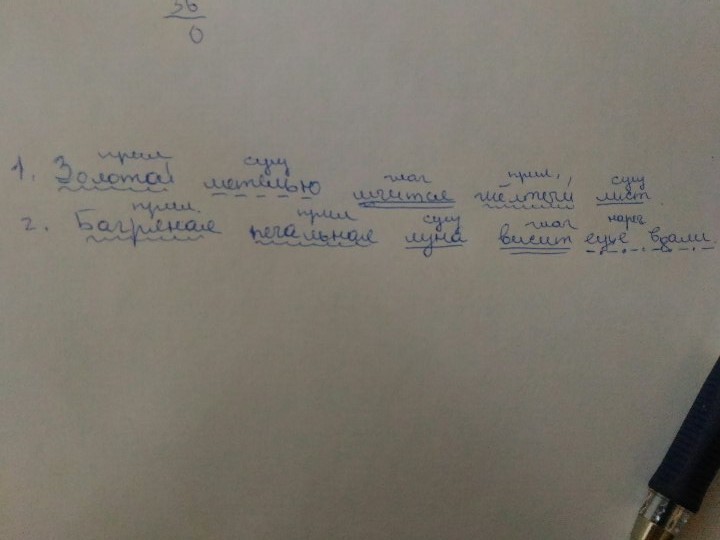 36
0
прил сущ глаг прил. сущ
1. Золотой метелью мчится жёлтый лист.
прил. прил сущ глаг нареч
2. Багряная печальная луна висит ещё вдали.